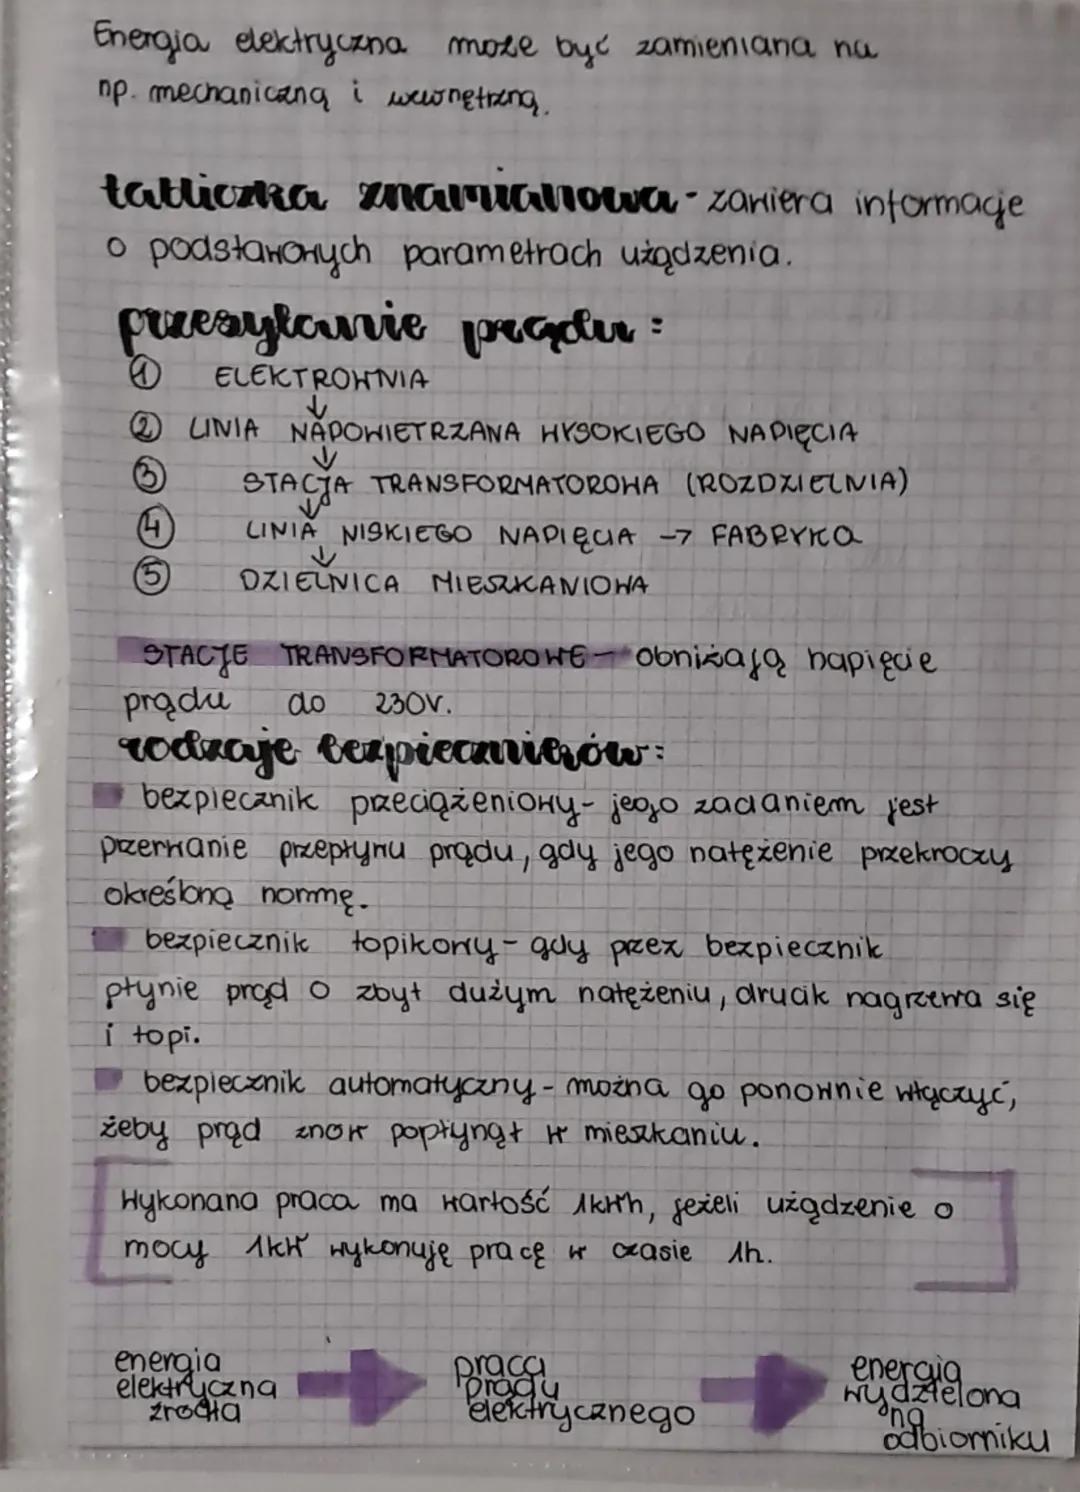 Energia elektryczna może być zamieniana na
np. mechaniczną i wewnętrzną.
tabliczka znamianowa - zawiera informacje
o podstawowych parametrach użądzenia.
przesyłanie prądu:
① ELEKTROWNIA
↓
② LINIA NAPOWIETRZANA WYSOKIEGO NAPIĘCIA
↓
③ STACJA TRANSFORMATOROWA (ROZDZIELNIA)
↓
④ LINIA NISKIEGO NAPIĘCIA → FABRYKA
↓
⑤ DZIELNICA MIESZKANIOWA
STACJE TRANSFORMATOROWE - obniżają napięcie
prądu do 230V.
rodzaje bezpieczników:
bezpiecznik przeciążeniowy - jego zadaniem jest
przerwanie przepływu prądu, gdy jego natężenie przekroczy
określoną normę.
bezpiecznik topikowy - gdy przez bezpiecznik
płynie prąd o zbyt dużym natężeniu, drucik nagrzewa się
i topi.
bezpiecznik automatyczny - można go ponownie włączyć,
żeby prąd znow popłynął w mieszkaniu.
Wykonana praca ma wartość 1kWh, jeżeli użądzenie o
mocy 1kW wykonuję pracę w czasie 1h.
energia
elektryczna
źrodła
→
praca
prądu
elektrycznego
→
energia
wydzielona
na
odbiorniku